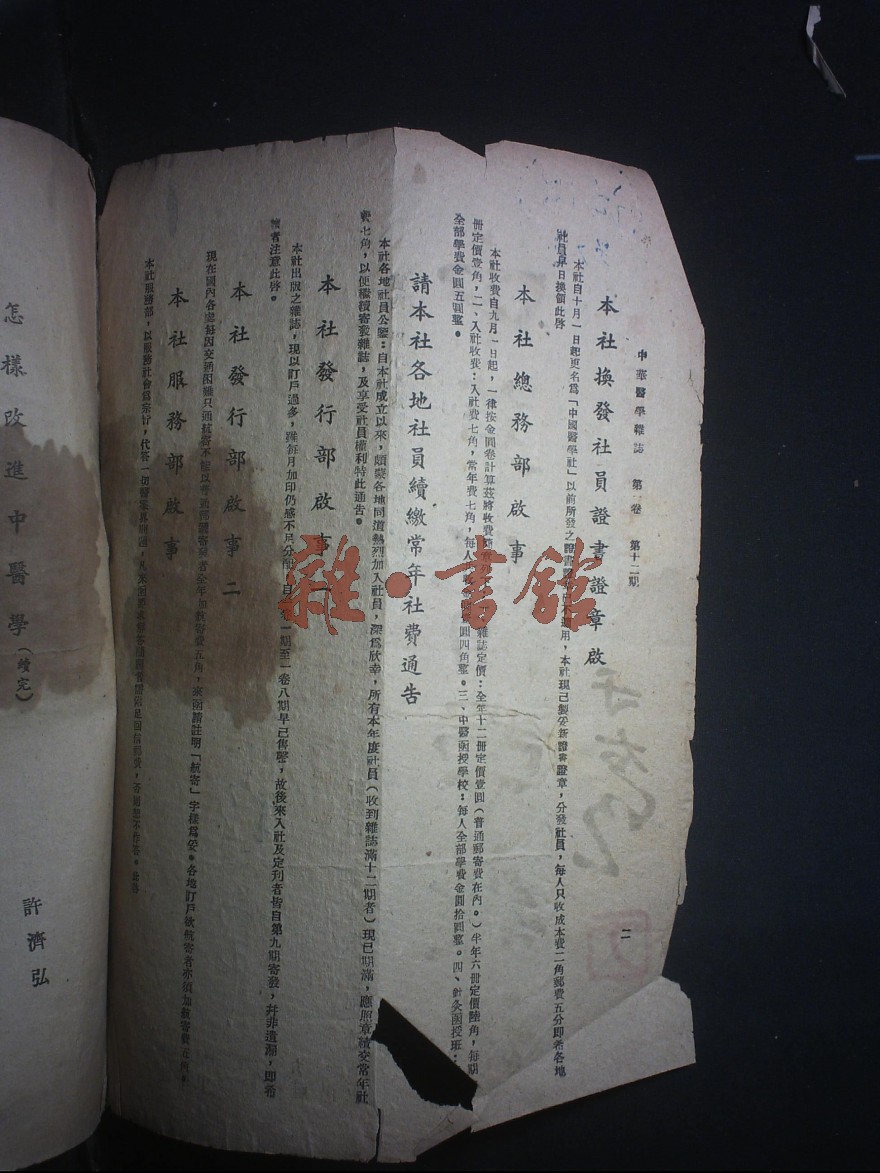 中華醫學雜誌　第一卷　第十二期
二
本社換發社員證書證章啟
本社自十月一日起更名爲「中國醫學社」以前所發之證書證章已不適用，本社現已製妥新證書證章，分發社員，每人只收成本費二角郵費五分即希各地
社員早日換領此啓
本社總務部啟事
本社收費自九月一日起，一律按金圓卷計算茲將收費 雜誌定價：全年十二冊定價壹圓（普通郵寄費在內。）半年六冊定價陸角，每期
一冊定價壹角，二、入社收費：入社費七角，常年費七角，每人 壹圓四角整。三、中醫函授學校：每人全部學費金圓拾圓整。四、針灸函授班：
全部學費金圓五圓整。
請本社各地社員續繳常年社費通告
本社各地社員公鑒：自本社成立以來，頗蒙各地同道熱烈加入社員，深爲欣幸，所有本年度社員（收到雜誌滿十二期者）現已期滿，應照章續交常年社
費七角，以便繼續寄發雜誌，及享受社員權利特此通告。
本社發行部啟事
本社出版之雜誌，現以訂戶過多，雖每月加印仍感不足分配，自 一期至一卷八期早已售罄，故後來入社及定刋者皆自第九期寄發，幷非遺漏，即希
讀者注意此啓。
本社發行部啟事二
現在國內各處每因交通困難只通航寄不能以普通郵 寄發者全年加航寄費五角，來函請註明「航寄」字樣爲妥。各地訂戶欲航寄者亦須加航寄費五角。
本社服務部啟事
本社服務部，以服務社會爲宗旨，代答一切醫 此啓
怎樣改進中醫學（續完）
許濟弘
雜·書館